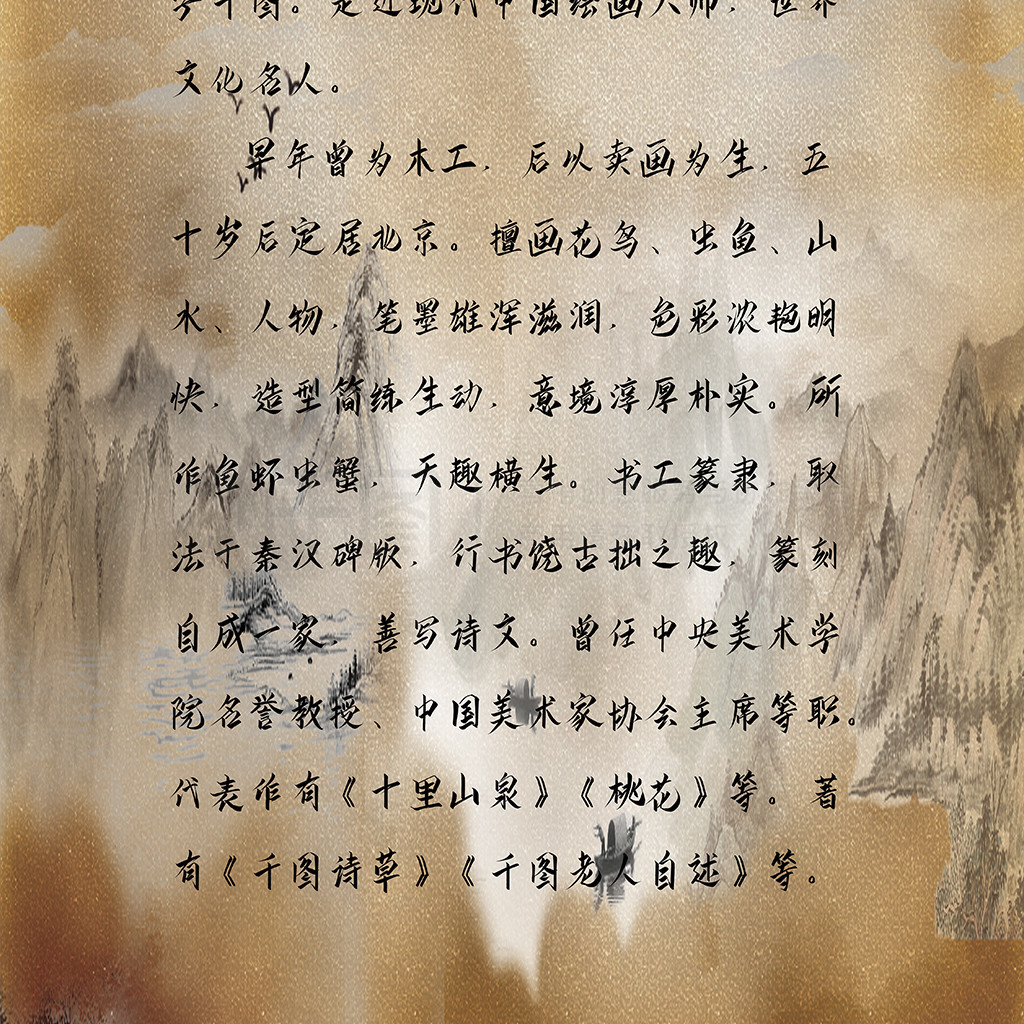 千图。是近现代中国绘画大师，世界
文化名人。
早年曾为木工，后以卖画为生，五
十岁后定居北京。擅画花鸟、虫鱼、山
水、人物，笔墨雄浑滋润，色彩浓艳明
快，造型简练生动，意境淳厚朴实。所
作鱼虾虫蟹，天趣横生。书工篆隶，取
法于秦汉碑版，行书饶古拙之趣，篆刻
自成一家，善写诗文。曾任中央美术学
院名誉教授、中国美术家协会主席等职。
代表作有《十里山泉》《桃花》等。著
有《千图诗草》《千图老人自述》等。